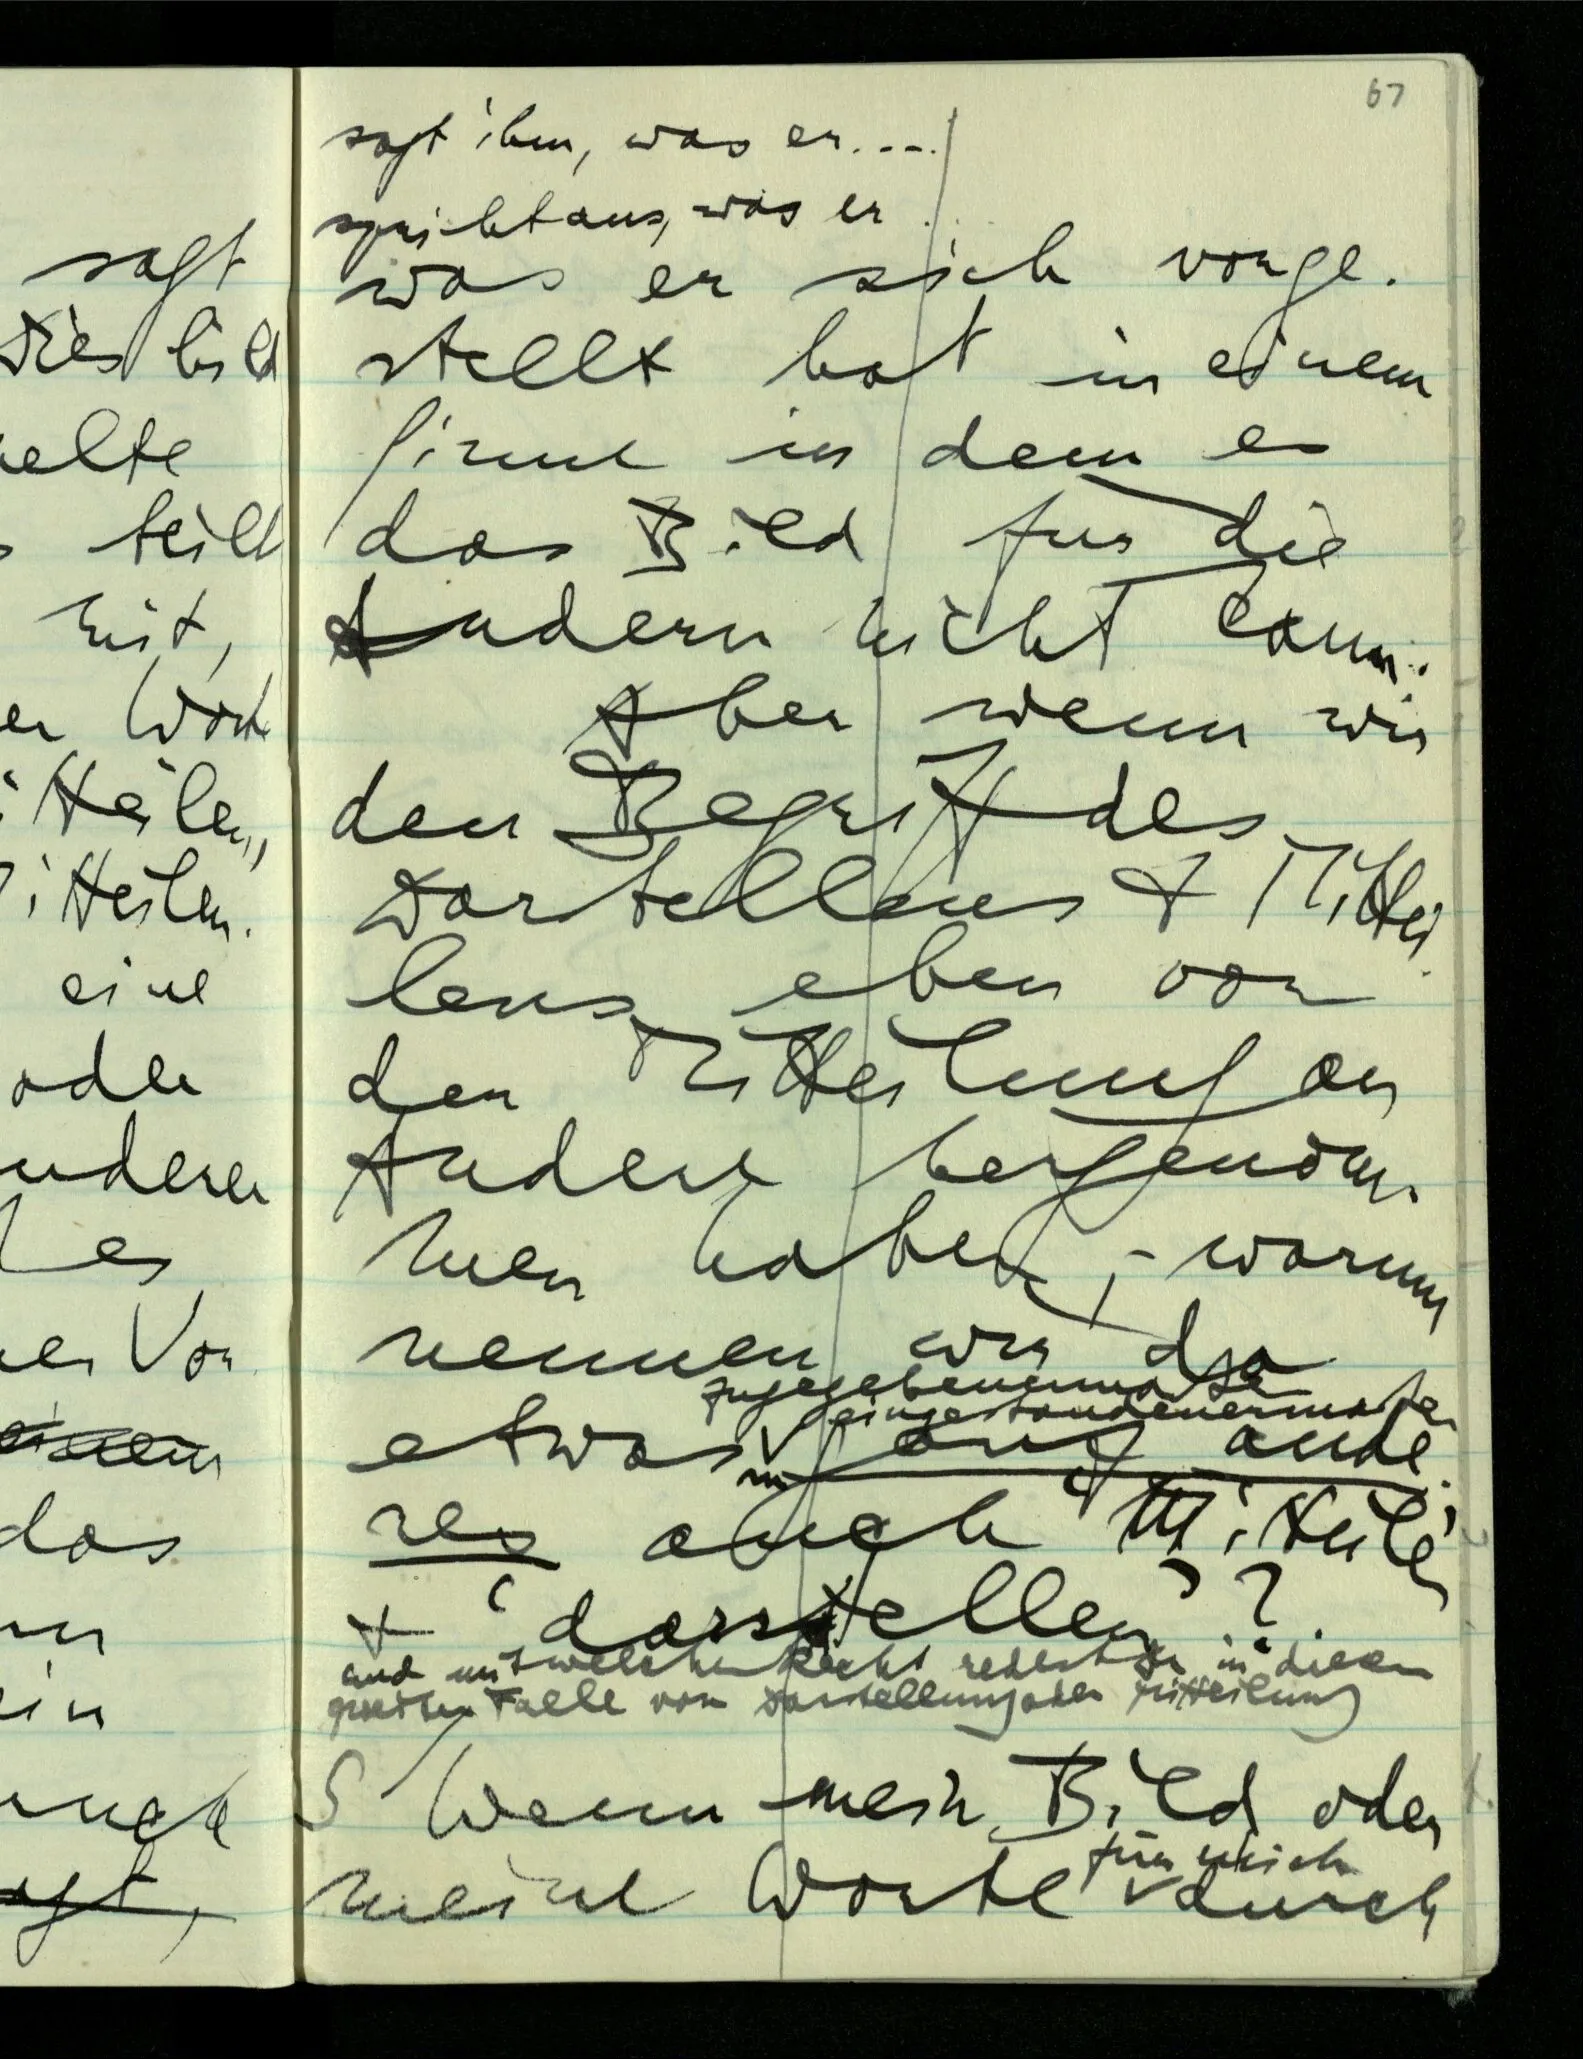 67
sagt
Dies Bild
teilt
mit,
Worte
eine
oder
anderen
es
Vor
einem
das
ein
sagt ihm, was er....
spricht aus, was er ...
was er sich vorge.
stellt hat in einem
Sinne in dem es
das Bild für die
Andern nicht kann.
Aber wenn wir
den Begriff des
Darstellens & Mittei
lens eben von
der Mitteilung an
Andere hergenom.
men haben, – warum
nennen wir da
zugegebenermaßen
eingestandenermaßen
etwas ganz ande.
res auch ‘Mitteilen’
& ‘darstellen’?
und mit welchem Recht redest Du in diesem
zweiten Falle von Darstellung oder Mitteilung
S / Wenn mein Bild oder
für mich
meine Worte durch